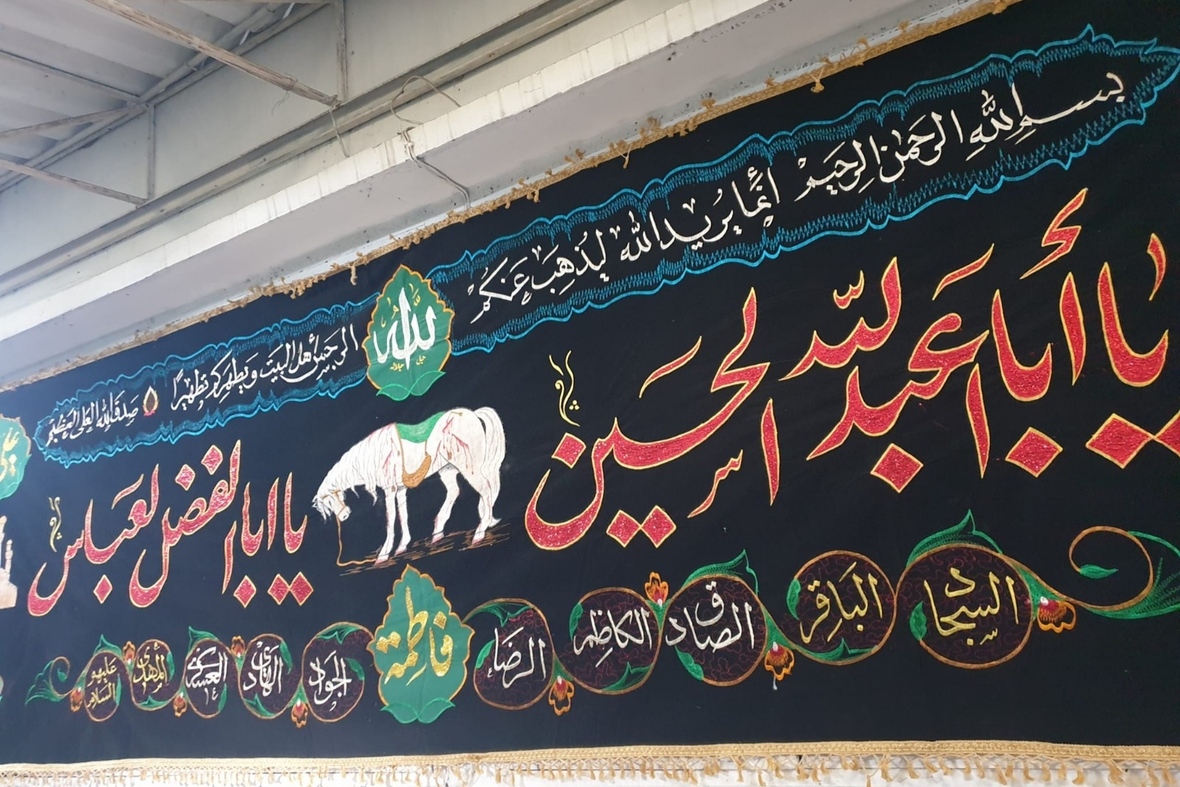 بسم الله الرحمن الرحيم انما يريد الله ليذهب عنكم
الله
جل جلاله
الرجس أهل البيت و يطهركم تطهيرا
صدق الله العلي العظيم
يا أبا عبد الله الحسين
يا ابا الفضل العباس
السجاد
الباقر
الصادق
الكاظم
الرضا
فاطمة
الجواد
الهادي
العسكري
المهدي
عليهم السلام